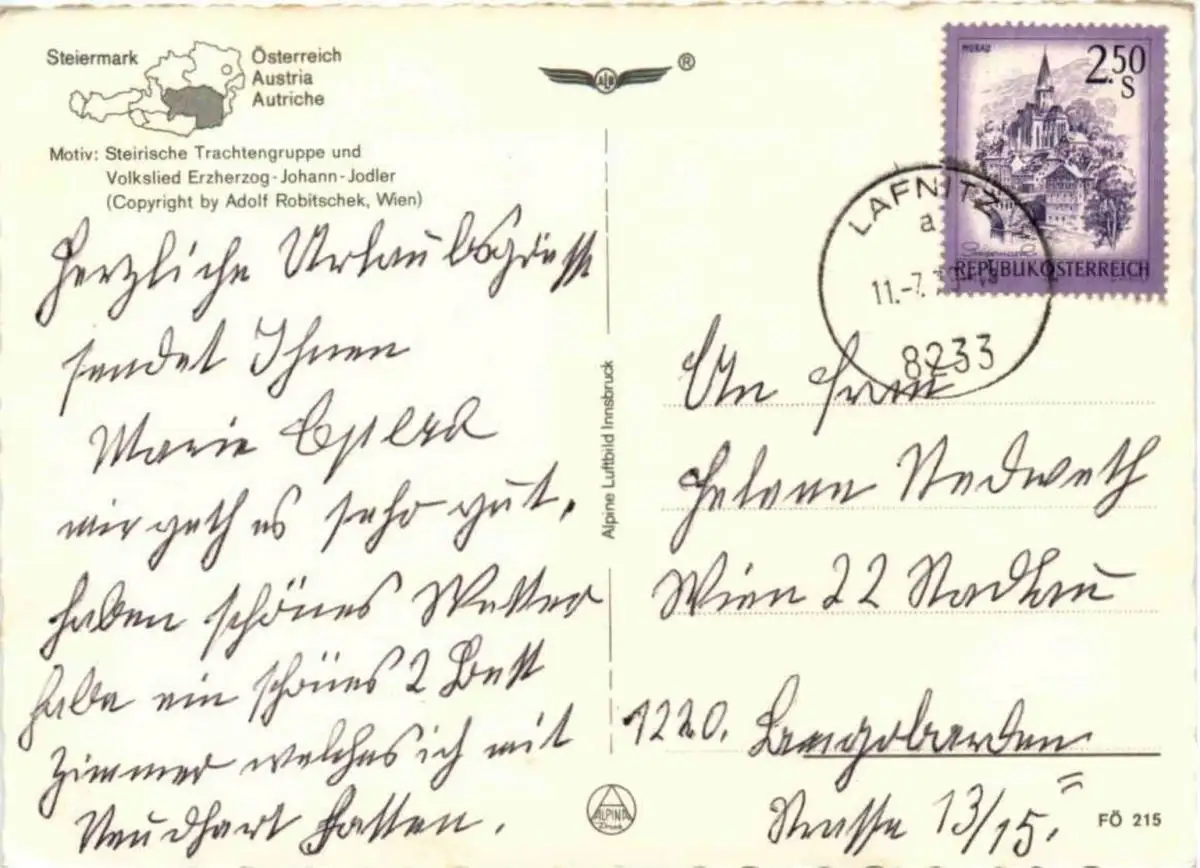 Steiermark
Österreich
Austria
Autriche
Motiv: Steirische Trachtengruppe und
Volkslied Erzherzog-Johann-Jodler
(Copyright by Adolf Robitschek, Wien)
ALB ®
MURAU
2.50
S
REPUBLIK ÖSTERREICH
LAFNITZ
a
11.-7.
8233
Herzliche Urlaubsgrüsse
sendet Ihnen
Marie
mir geth es sehr gut.
haben schönes Wetter
habe ein schönes 2 Bett
Zimmer welches ich mit
Alpine Luftbild Innsbruck
An Frau
Helene Nedweth
Wien 22 Stadlau
1220. Langobarden
Strasse 13/15.
ALPINA
Druck
FÖ 215